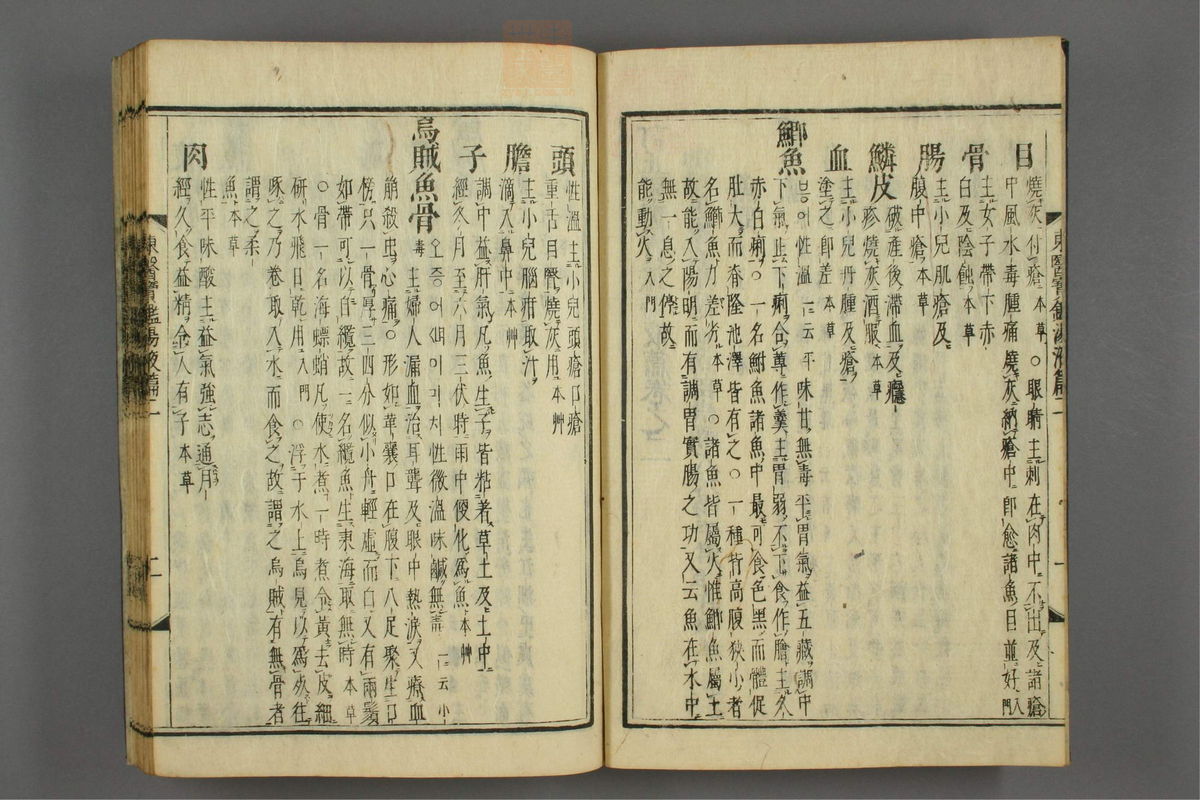 目
燒灰付瘡本草○眼睛主刺在肉中不出及諸瘡
中風水毒腫痛燒灰納瘡中卽愈諸魚目並好入門
骨
主女子帶下赤
白及陰蝕本草
腸
主小兒肌瘡及
腹中瘡本草
鱗皮
破產後滯血及癮
疹燒灰酒服本草
血
主小兒丹腫及瘡
塗之卽差本草
鯽魚
붕어性溫一云平味甘無毒平胃氣益五藏調中
下氣止下痢合蓴作羹主胃弱不下食作膾主久
赤白痢○一名鮒魚諸魚中最可食色黑而體促
肚大而脊隆池澤皆有之○一種背高腹狹小者
名鰤魚力差劣本草○諸魚皆屬火惟鯽魚屬土
故能入陽明而有調胃實腸之功又云魚在水中
無一息之停故
能動火入門
頭
性溫主小兒頭瘡口瘡
重舌目瞖燒灰用本艸
膽
主小兒腦疳取汁
滴入鼻中本艸
子
調中益肝氣凡魚生子皆粘著草土及土中
經冬月至六月三伏時雨中便化爲魚本艸
烏賊魚骨
오증어뼈이긔치性微溫味鹹無毒一云小
毒主婦人漏血治耳聾及眼中熱淚又療血
崩殺蟲心痛○形如革囊口在腹下八足聚生口
傍只一骨厚三四分似小舟輕虛而白又有兩鬚
如帶可以自纜故一名纜魚生東海取無時本草
○骨一名海螵蛸凡使水煮一時煮令黃去皮細
研水飛日乾用入門○浮于水上烏見以爲死往
啄之乃卷取入水而食之故謂之烏賊有無骨者
謂之柔
魚本草
肉
性平味酸主益氣强志通月
經久食益精令人有子本草